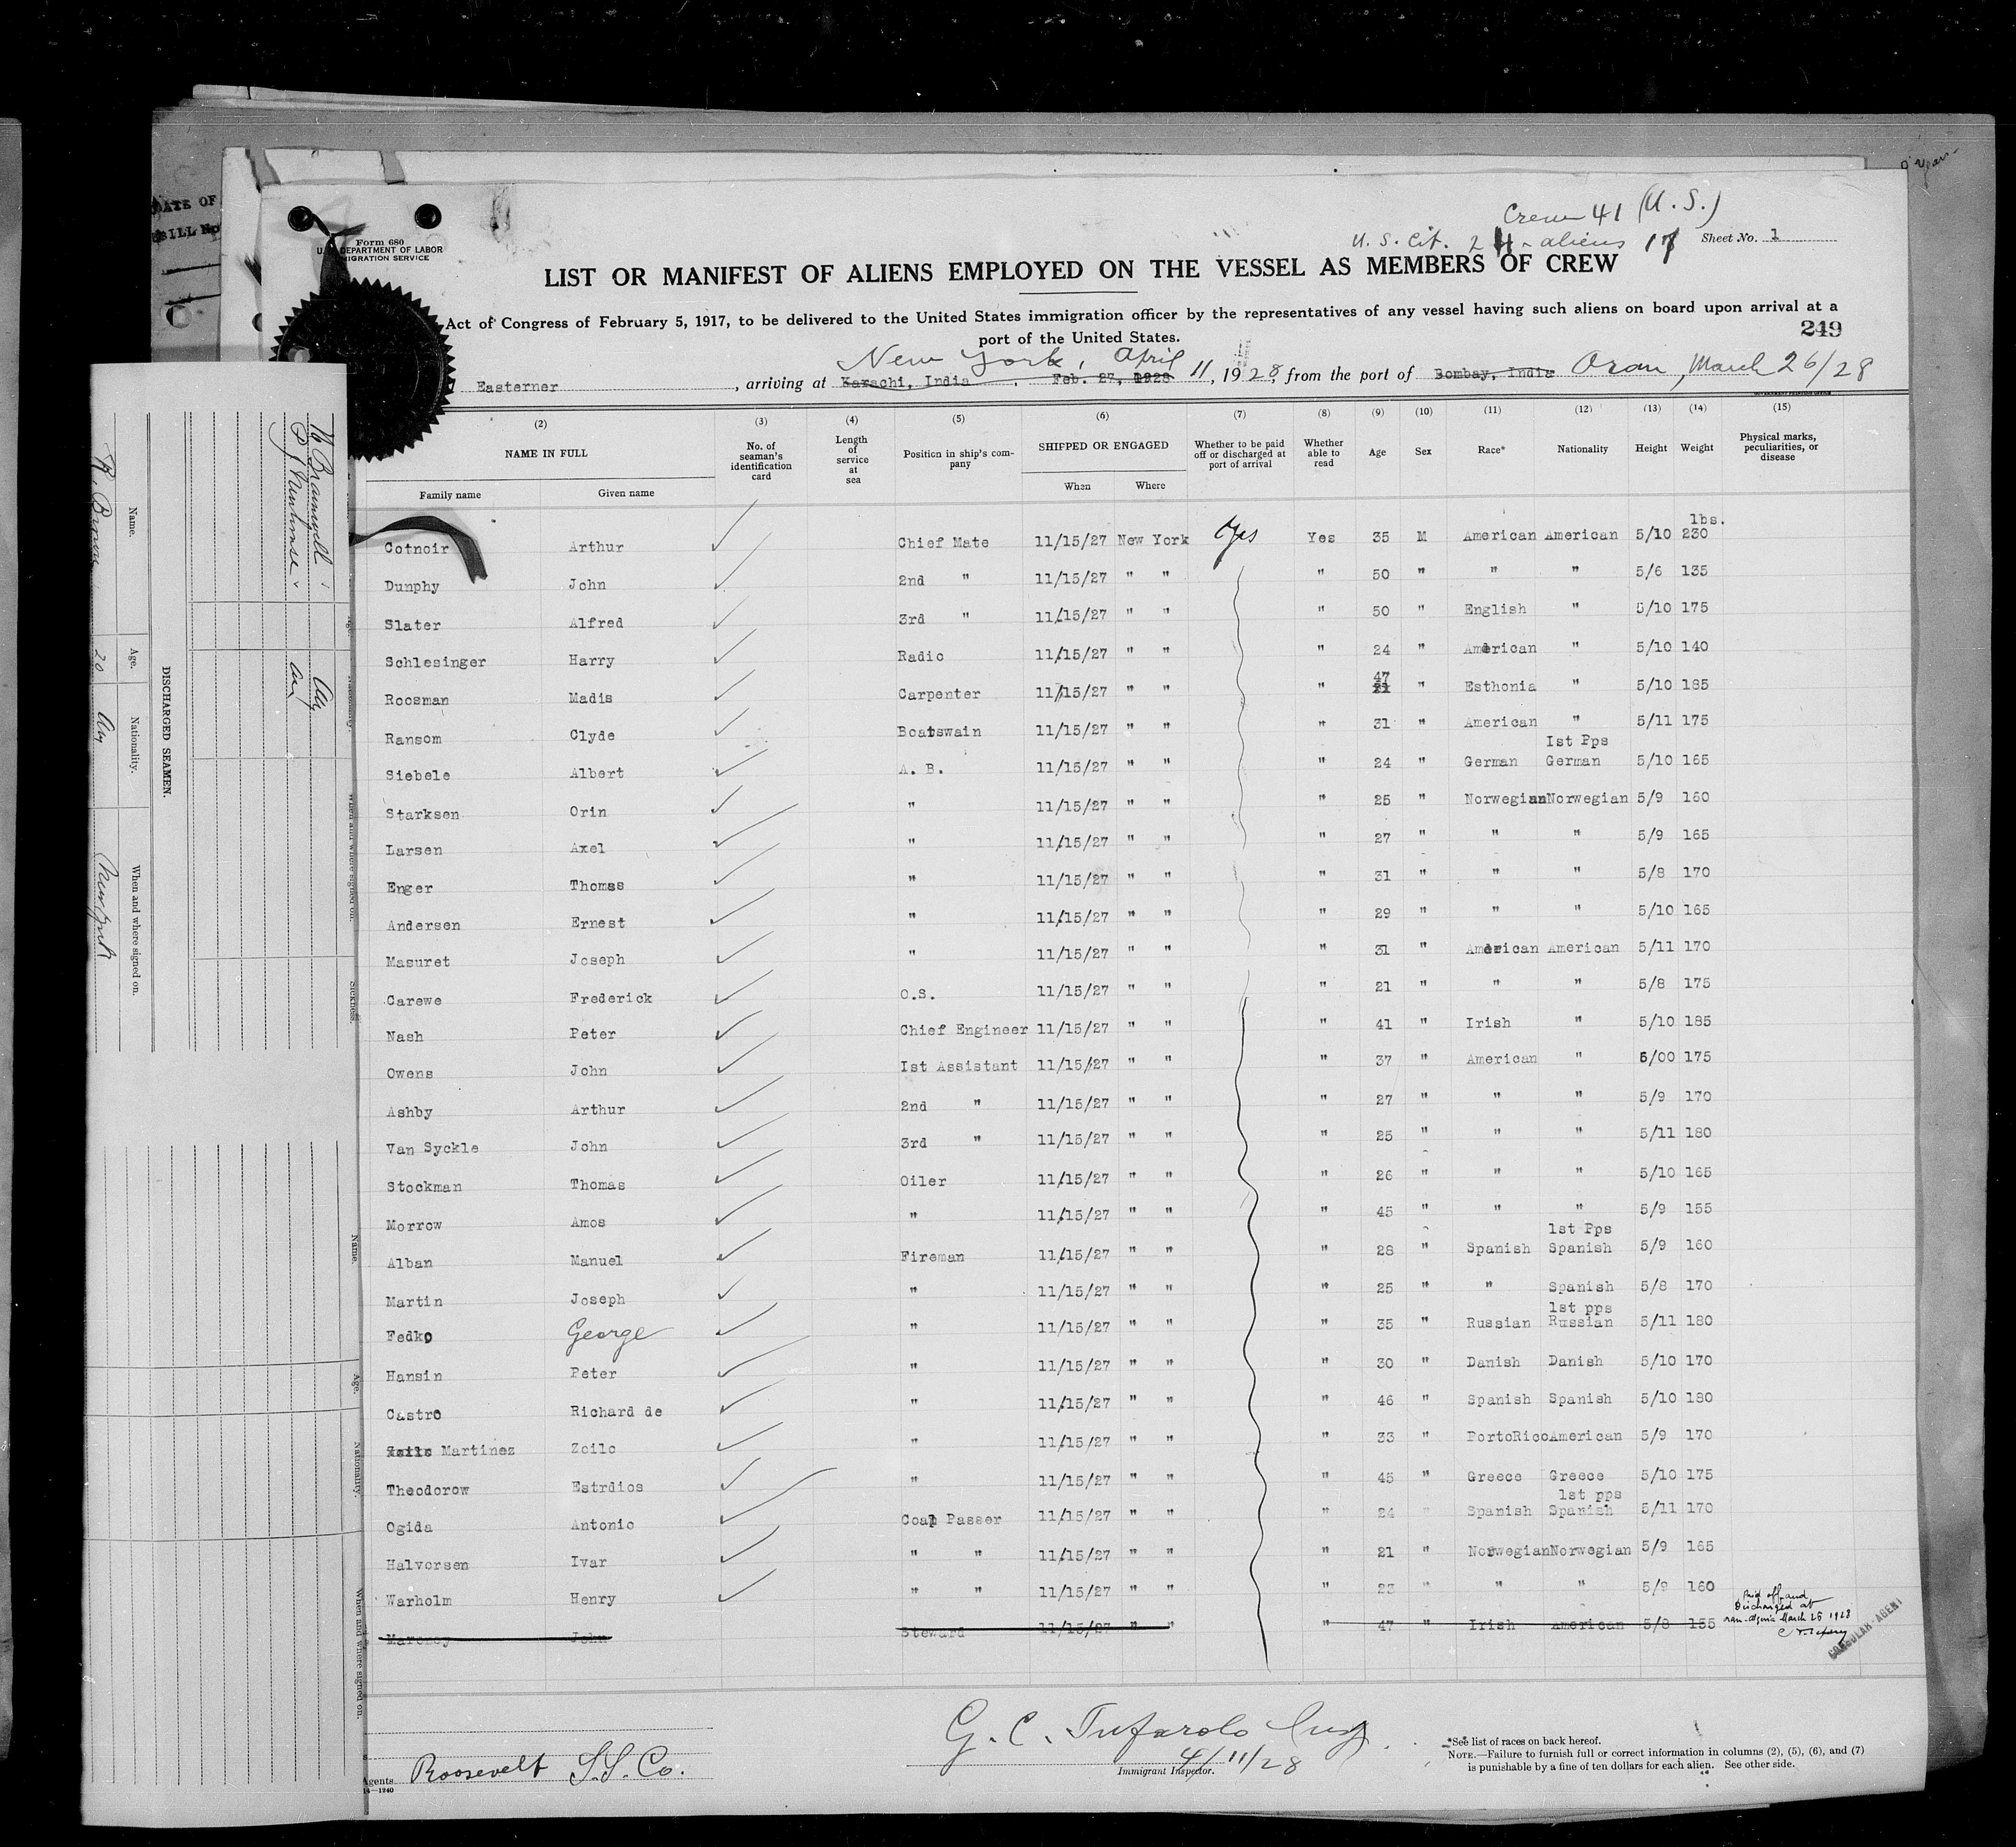 Crew 41 (U.S.)
U.S. Cit. 24 - aliens 17 Sheet No. 1
Form 680
DEPARTMENT OF LABOR
IMMIGRATION SERVICE
LIST OR MANIFEST OF ALIENS EMPLOYED ON THE VESSEL AS MEMBERS OF CREW
Act of Congress of February 5, 1917, to be delivered to the United States immigration officer by the representatives of any vessel having such aliens on board upon arrival at a
port of the United States.
249
New York, April
Easterner, arriving at Karachi, India. Feb. 27, 1928 11, 1928, from the port of Bombay, India Oran, March 26/28
(2) (3) (4) (5) (6) (7) (8) (9) (10) (11) (12) (13) (14) (15)
NAME IN FULL
Family name Given name
No. of seaman's identification card
Length of service at sea
Position in ship's company
SHIPPED OR ENGAGED
When Where
Whether to be paid off or discharged at port of arrival
Whether able to read
Age Sex Race* Nationality Height Weight
Physical marks, peculiarities, or disease
lbs.
Cotnoir Arthur Chief Mate 11/15/27 New York Yes Yes 35 M American American 5/10 230
Dunphy John 2nd " 11/15/27 " " " 50 " " " 5/6 135
Slater Alfred 3rd " 11/15/27 " " " 50 " English " 5/10 175
Schlesinger Harry Radio 11/15/27 " " " 24 " American " 5/10 140
47
Roosman Madis Carpenter 11/15/27 " " " " Esthonia " 5/10 185
Ransom Clyde Boatswain 11/15/27 " " " 31 " American " 5/11 175
1st Pps
Siebele Albert A. B. 11/15/27 " " " 24 " German German 5/10 165
Starksen Orin " 11/15/27 " " " 25 " Norwegian Norwegian 5/9 160
Larsen Axel " 11/15/27 " " " 27 " " " 5/9 165
Enger Thomas " 11/15/27 " " " 31 " " " 5/8 170
Andersen Ernest " 11/15/27 " " " 29 " " " 5/10 165
Masuret Joseph " 11/15/27 " " " 31 " American American 5/11 170
Carewe Frederick O.S. 11/15/27 " " " 21 " " " 5/8 175
Nash Peter Chief Engineer 11/15/27 " " " 41 " Irish " 5/10 185
Owens John 1st Assistant 11/15/27 " " " 37 " American " 6/00 175
Ashby Arthur 2nd " 11/15/27 " " " 27 " " " 5/9 170
Van Syckle John 3rd " 11/15/27 " " " 25 " " " 5/11 180
Stockman Thomas Oiler 11/15/27 " " " 26 " " " 5/10 165
Morrow Amos " 11/15/27 " " " 45 " " " 5/9 155
1st Pps
Alban Manuel Fireman 11/15/27 " " " 28 " Spanish Spanish 5/9 160
Martin Joseph " 11/15/27 " " " 25 " " Spanish 5/8 170
1st pps
Fedko George " 11/15/27 " " " 35 " Russian Russian 5/11 180
Hansin Peter " 11/15/27 " " " 30 " Danish Danish 5/10 170
Castro Richard de " 11/15/27 " " " 46 " Spanish Spanish 5/10 180
Zoilo Martinez Zoilo " 11/15/27 " " " 33 " PortoRico American 5/9 170
Theodorow Estrdios " 11/15/27 " " " 45 " Greece Greece 5/10 175
1st pps
Ogida Antonio Coal Passer 11/15/27 " " " 24 " Spanish Spanish 5/11 170
Halvorsen Ivar " " 11/15/27 " " " 21 " Norwegian Norwegian 5/9 165
Warholm Henry " " 11/15/27 " " " 23 " " " 5/9 160
Maroney John Steward 11/15/27 " " " 47 " Irish American 5/8 155
Paid off and
Discharged at
Oran-Algeria March 26 1928
CONSULAR AGENT
G. C. Tufarolo Insp.
4/11/28
Immigrant Inspector.
Agents Roosevelt S.S. Co.
14—1240
*See list of races on back hereof.
NOTE.—Failure to furnish full or correct information in columns (2), (5), (6), and (7)
is punishable by a fine of ten dollars for each alien. See other side.
DATE OF
DISCHARGED SEAMEN.
Name. Age. Nationality. When and where signed on.
20 New York
Sickness.
Name. Age. Nationality. When and where signed on.